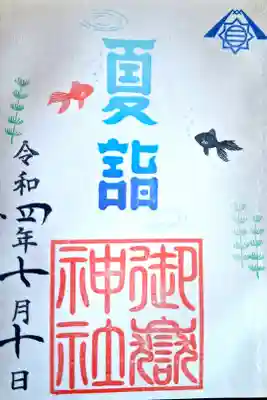 夏詣
令和四年七月十日
御嶽
神社